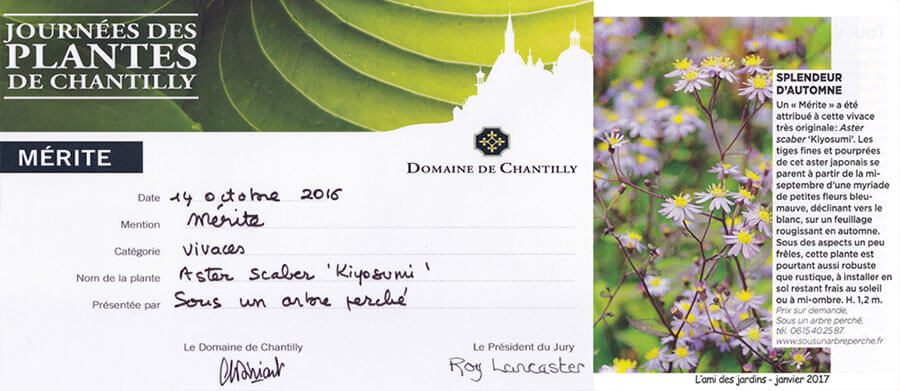 JOURNÉES DES
PLANTES
DE CHANTILLY
DOMAINE DE CHANTILLY
MÉRITE
Date 14 octobre 2016
Mention Mérite
Catégorie vivaces
Nom de la plante Aster scaber 'Kiyosumi'
Présentée par Sous un arbre perché
Le Domaine de Chantilly
Le Président du Jury
Roy Lancaster
SPLENDEUR
D'AUTOMNE
Un « Mérite » a été
attribué à cette vivace
très originale : Aster
scaber 'Kiyosumi'. Les
tiges fines et pourprées
de cet aster japonais se
parent à partir de la mi-
septembre d'une myriade
de petites fleurs bleu-
mauve, déclinant vers le
blanc, sur un feuillage
rougissant en automne.
Sous des aspects un peu
frêles, cette plante est
pourtant aussi robuste
que rustique, à installer en
sol restant frais au soleil
ou à mi-ombre. H. 1,2 m.
Prix sur demande,
Sous un arbre perché,
tél. 06 15 40 25 87.
www.sousunarbreperche.fr
L'ami des jardins - janvier 2017